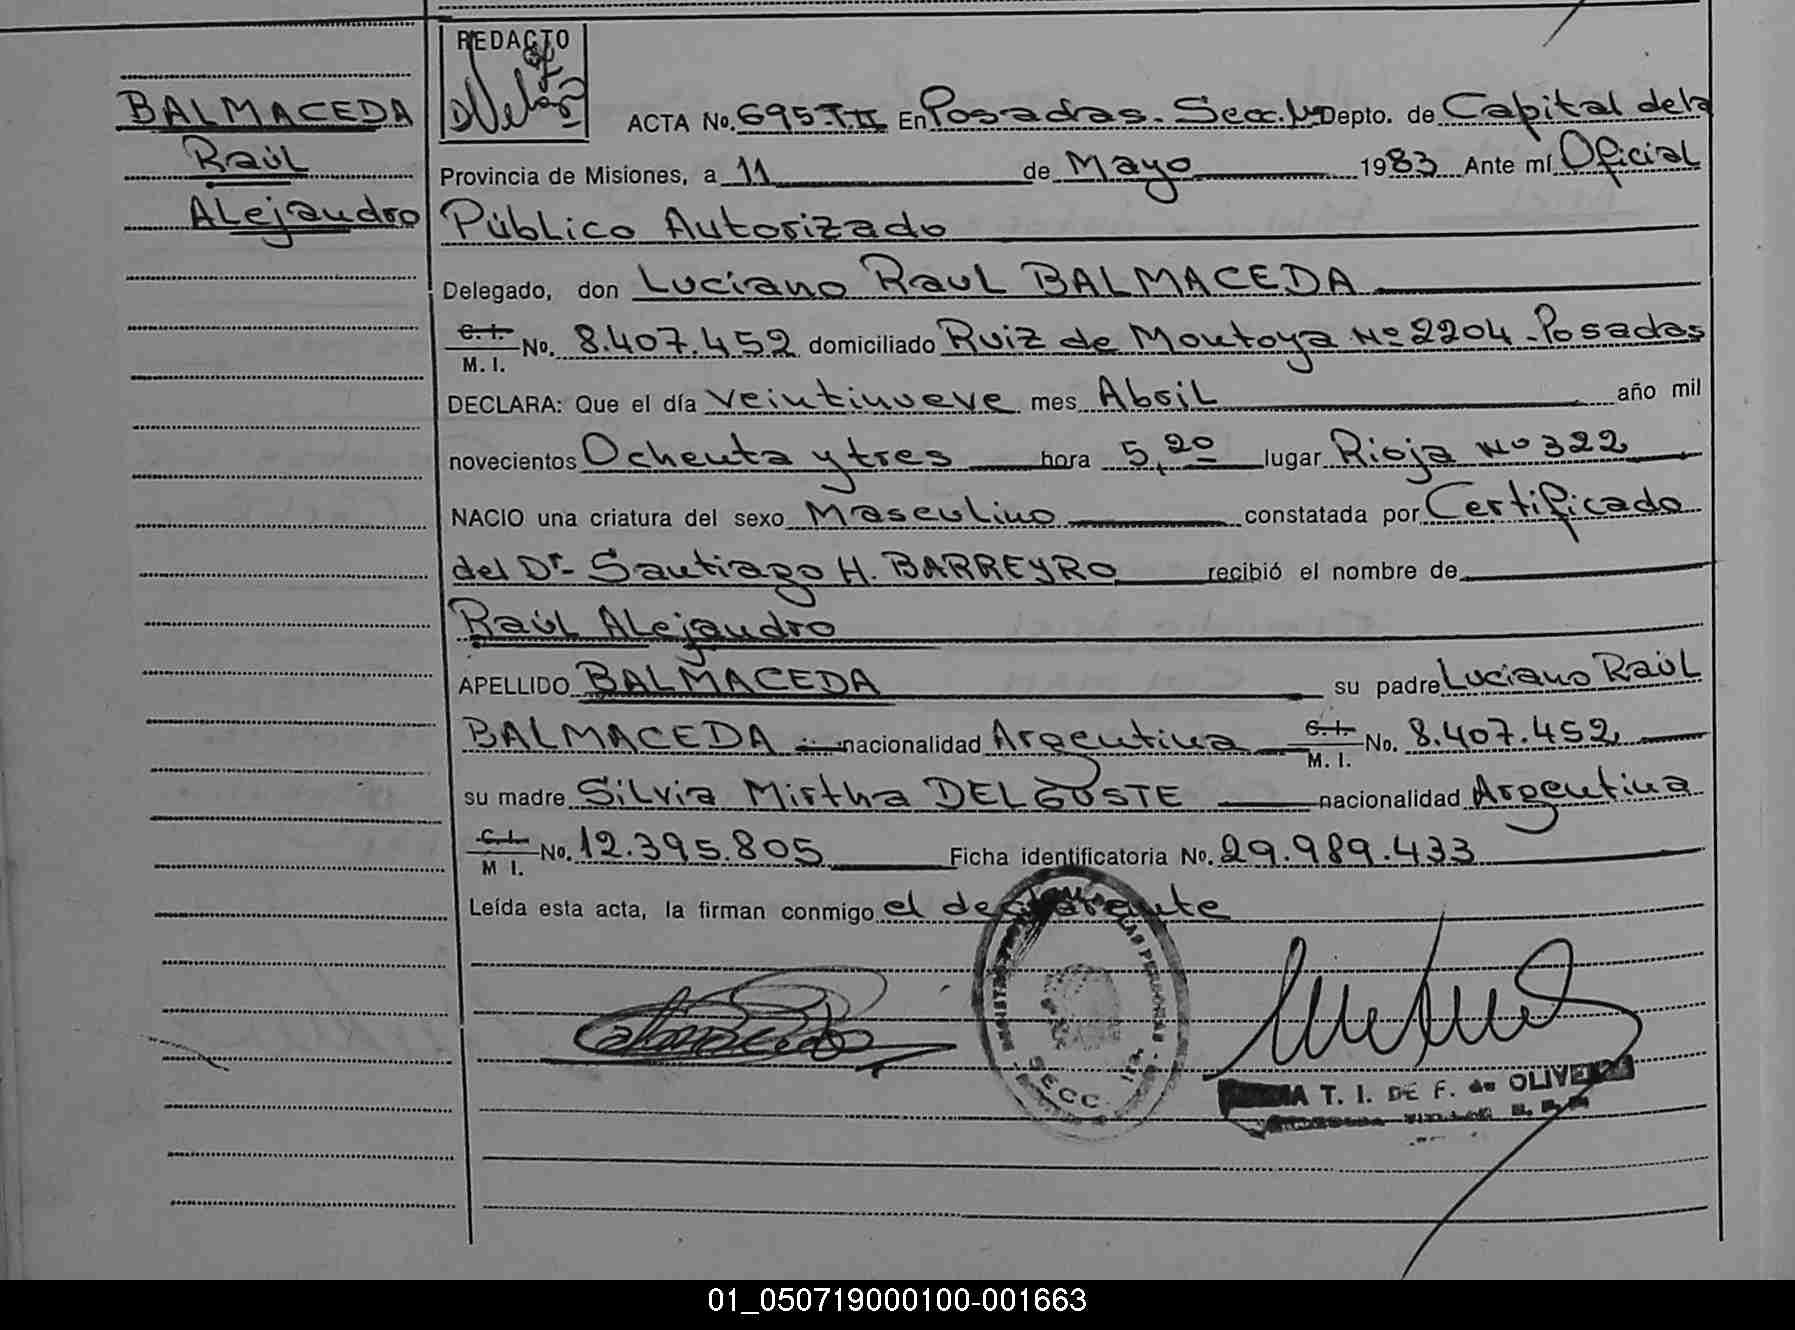 REDACTO
BALMACEDA
Raúl
Alejandro
ACTA No. 695 T.II En Posadas. Secc. Depto. de Capital dela
Provincia de Misiones, a 11 de Mayo 1983 Ante mí Oficial
Público Autorizado
Delegado, don Luciano Raul BALMACEDA
C. I.
M. I. No. 8.407.452 domiciliado Ruiz de Montoya Nº 2204 - Posadas
DECLARA: Que el día veintinueve mes Abril año mil
novecientos Ochenta y tres hora 5,20 lugar Rioja Nº 322
NACIO una criatura del sexo Masculino constatada por Certificado
del Dr. Santiago H. BARREYRO recibió el nombre de
Raúl Alejandro
APELLIDO BALMACEDA su padre Luciano Raúl
BALMACEDA nacionalidad Argentina C. I.
M. I. No. 8.407.452
su madre Silvia Mirtha DELGUSTE nacionalidad Argentina
C. I.
M I. No. 12.395.805 Ficha identificatoria No. 29.989.433
Leída esta acta, la firman conmigo el declarante
SECC. 1ra.
T. I. DE F. de OLIVEIRA
01_050719000100-001663